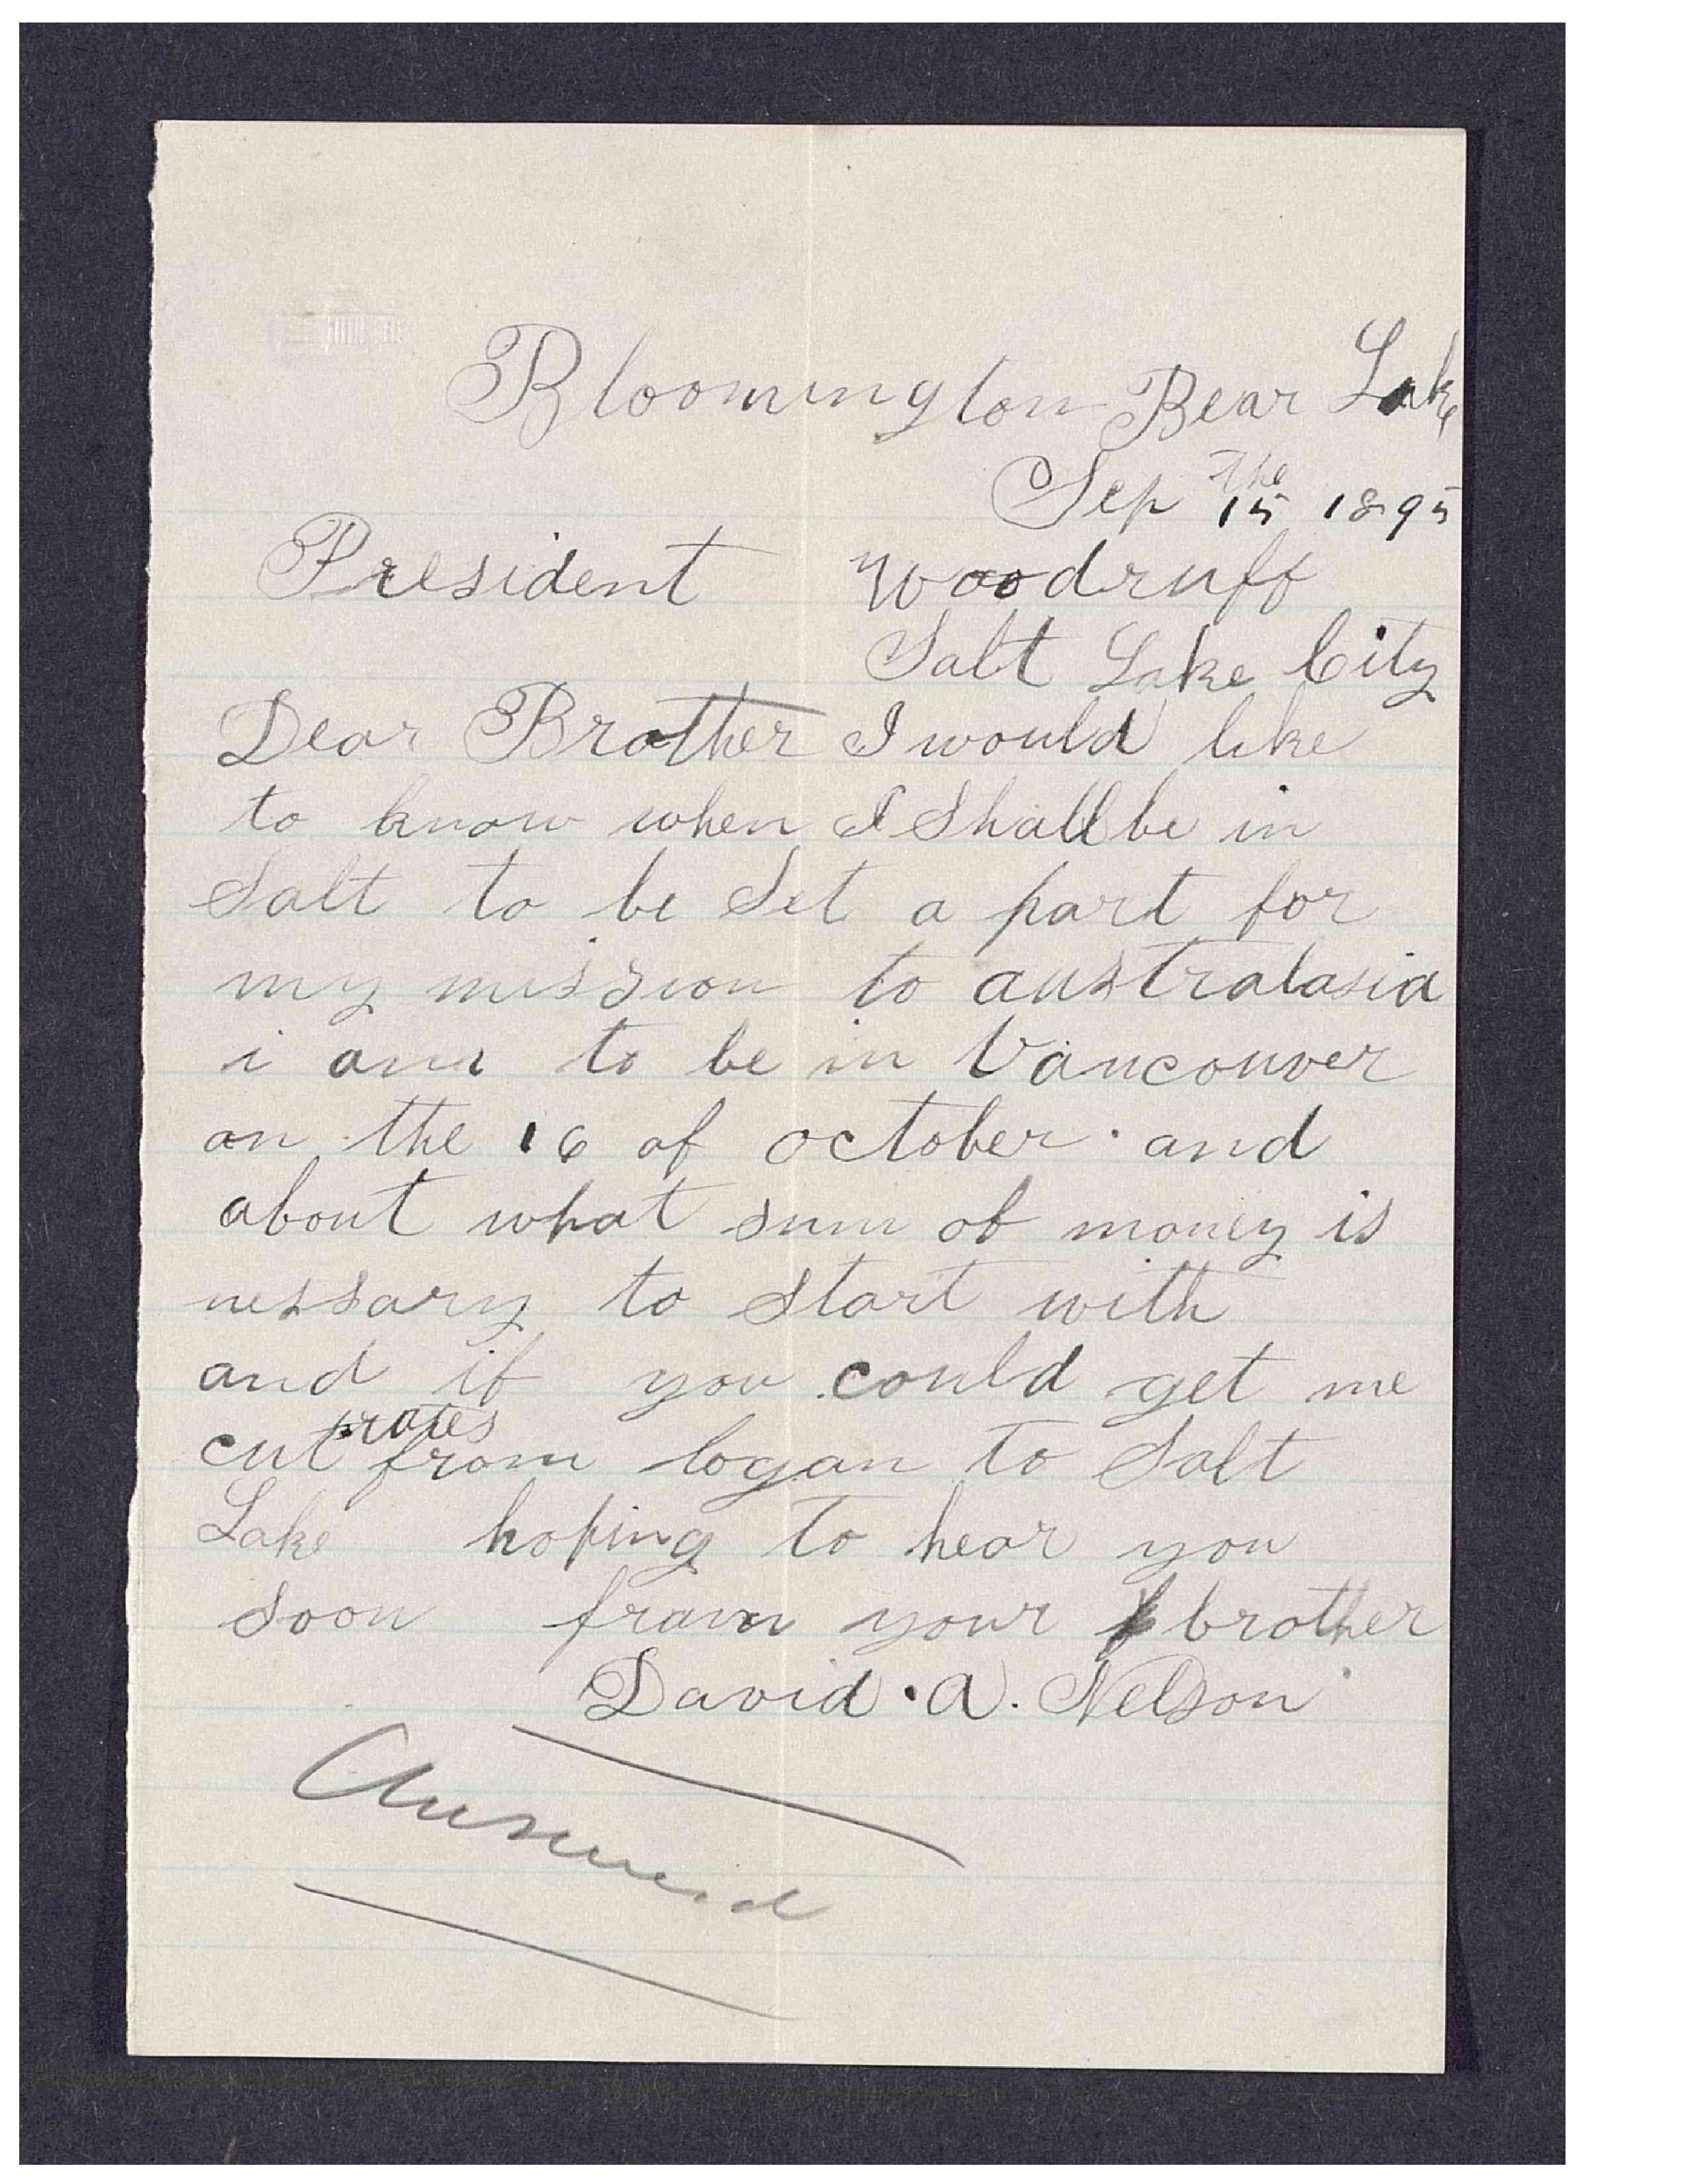 Bloomington Bear Lake
Sep the 15 1895
President Woodruff
Salt Lake City
Dear Brother I would like
to know when I Shall be in
Salt to be Set a part for
my mission to australasia
i am to be in Vancouver
on the 16 of october. and
about what sum of money is
nessary to Start with
and if you could get me
cut rates from logan to Salt
Lake hoping to hear you
soon from your brother
David. A. Nelson
Answerd